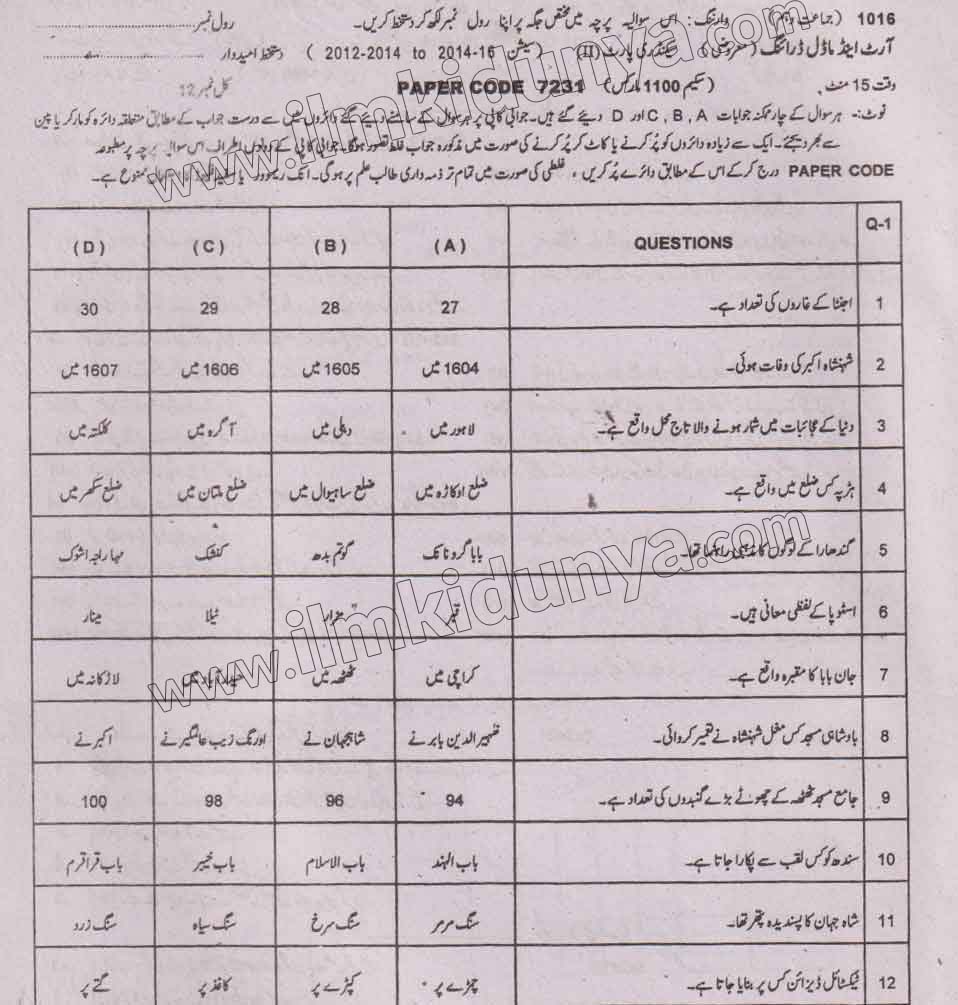 1016 (جماعت دہم) وارننگ: اس سوالیہ پرچہ میں مختص جگہ پر اپنا رول نمبر لکھ کر دستخط کریں۔ رول نمبر
آرٹ اینڈ ماڈل ڈرائنگ (معروضی) سیکنڈری پارٹ (II) (سیشن 2012-2014 to 2014-16) دستخط امیدوار
وقت 15 منٹ (سکیم 1100 مارکس) PAPER CODE 7231 کل نمبر 12
نوٹ:- ہر سوال کے چار ممکنہ جوابات C, B, A اور D دیئے گئے ہیں۔ جوابی کاپی پر ہر سوال کے سامنے دیئے گئے دائروں میں سے درست جواب کے مطابق متعلقہ دائرہ کو مارکر یا پین
سے بھر دیجئے۔ ایک سے زیادہ دائروں کو پُر کرنے یا کاٹ کر پُر کرنے کی صورت میں مذکورہ جواب غلط تصور ہوگا۔ جوابی کاپی کے دونوں اطراف اس سوالیہ پرچہ پر مطبوعہ
PAPER CODE درج کر کے اس کے مطابق دائرے پُر کریں، غلطی کی صورت میں تمام تر ذمہ داری طالب علم پر ہوگی۔ انک ریموور یا سفید فلوئڈ کا استعمال ممنوع ہے۔
Q-1 QUESTIONS (A) (B) (C) (D)
1 اجنٹا کے غاروں کی تعداد ہے۔ 27 28 29 30
2 شہنشاہ اکبر کی وفات ہوئی۔ 1604 میں 1605 میں 1606 میں 1607 میں
3 دنیا کے عجائبات میں شمار ہونے والا تاج محل واقع ہے۔ لاہور میں دہلی میں آگرہ میں کلکتہ میں
4 ہڑپہ کس ضلع میں واقع ہے۔ ضلع اوکاڑہ میں ضلع ساہیوال میں ضلع ملتان میں ضلع سکھر میں
5 گندھارا کے لوگوں کا مذہبی راہنما تھا۔ بابا گرونانک گوتم بدھ کنشک مہاراجہ اشوک
6 اسٹوپا کے لفظی معانی ہیں۔ قبر مزار ٹیلا مینار
7 جان بابا کا مقبرہ واقع ہے۔ کراچی میں ٹھٹھہ میں حیدرآباد میں لاڑکانہ میں
8 بادشاہی مسجد کس مغل شہنشاہ نے تعمیر کروائی۔ ظہیر الدین بابر نے شاہجہان نے اورنگ زیب عالمگیر نے اکبر نے
9 جامع مسجد ٹھٹھہ کے چھوٹے بڑے گنبدوں کی تعداد ہے۔ 94 96 98 100
10 سندھ کو کس لقب سے پکارا جاتا ہے۔ باب الہند باب الاسلام باب خیبر باب قراقرم
11 شاہ جہان کا پسندیدہ پتھر تھا۔ سنگ مرمر سنگ سرخ سنگ سیاہ سنگ زرد
12 ٹیکسٹائل ڈیزائن کس پر بنایا جاتا ہے۔ چمڑے پر کپڑے پر کاغذ پر گتے پر
www.ilmkidunya.com
www.ilmkidunya.com